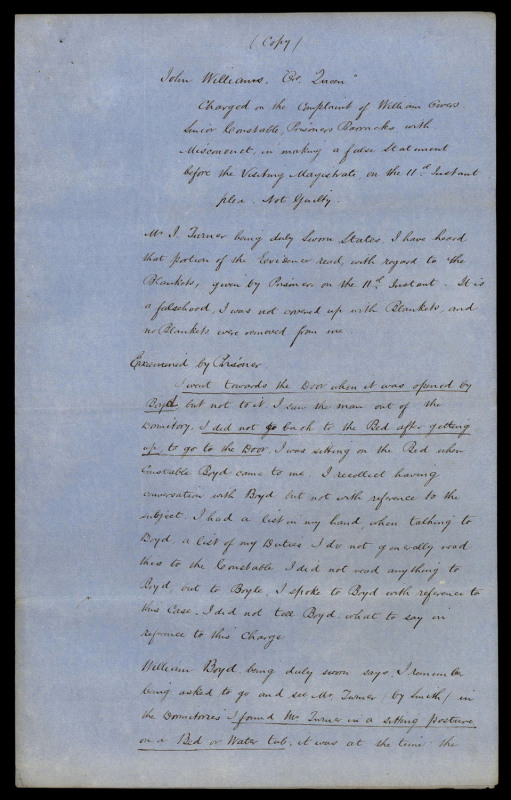 (Copy)
John Williams. "Qr. Queen"
Charged on the Complaint of William Givers
Senior Constable, Prisoners Barracks with
Misconduct, in making a false Statement
before the Visiting Magistrate on the 11th Instant
plea. Not Guilty.
Mr J. Turner being duly Sworn States, I have heard
that portion of the Evidence read, with regard to the
Blankets, given by Prisoner on the 11th Instant. It is
a falsehood, I was not covered up with Blankets, and
no Blankets were removed from me
Examined by Prisoner
I went towards the Door when it was opened by
Boyd but not to it. I saw the man out of the
Domitory, I did not go back to the Bed after getting
up, to go to the Door. I was sitting on the Bed when
Constable Boyd came to me. I recollect having
conversation with Boyd but not with reference to the
subject. I had a list in my hand, when talking to
Boyd, a list of my Duties. I do not generally read
this to the Constable I did not read anything to
Boyd, but to Boyle, I spoke to Boyd with reference to
this Case. I did not tell Boyd what to say in
refernce to this Charge
William Boyd being duly sworn says, I remember
being asked to go and see Mr. Turner (by Smith) in
the Domitories I found Mr Turner in a sitting posture
on a Bed or Water tub, it was at the time the